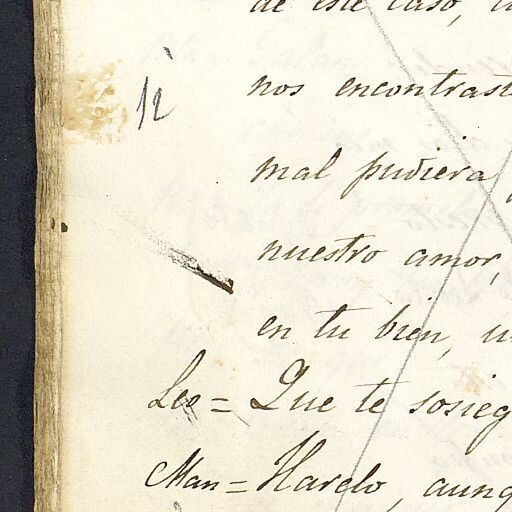 de este caso,
12
nos encontraste
mal pudiera
nuestro amor,
en tu bien,
Leo = Que te sosieg
Man = Harelo, aunq